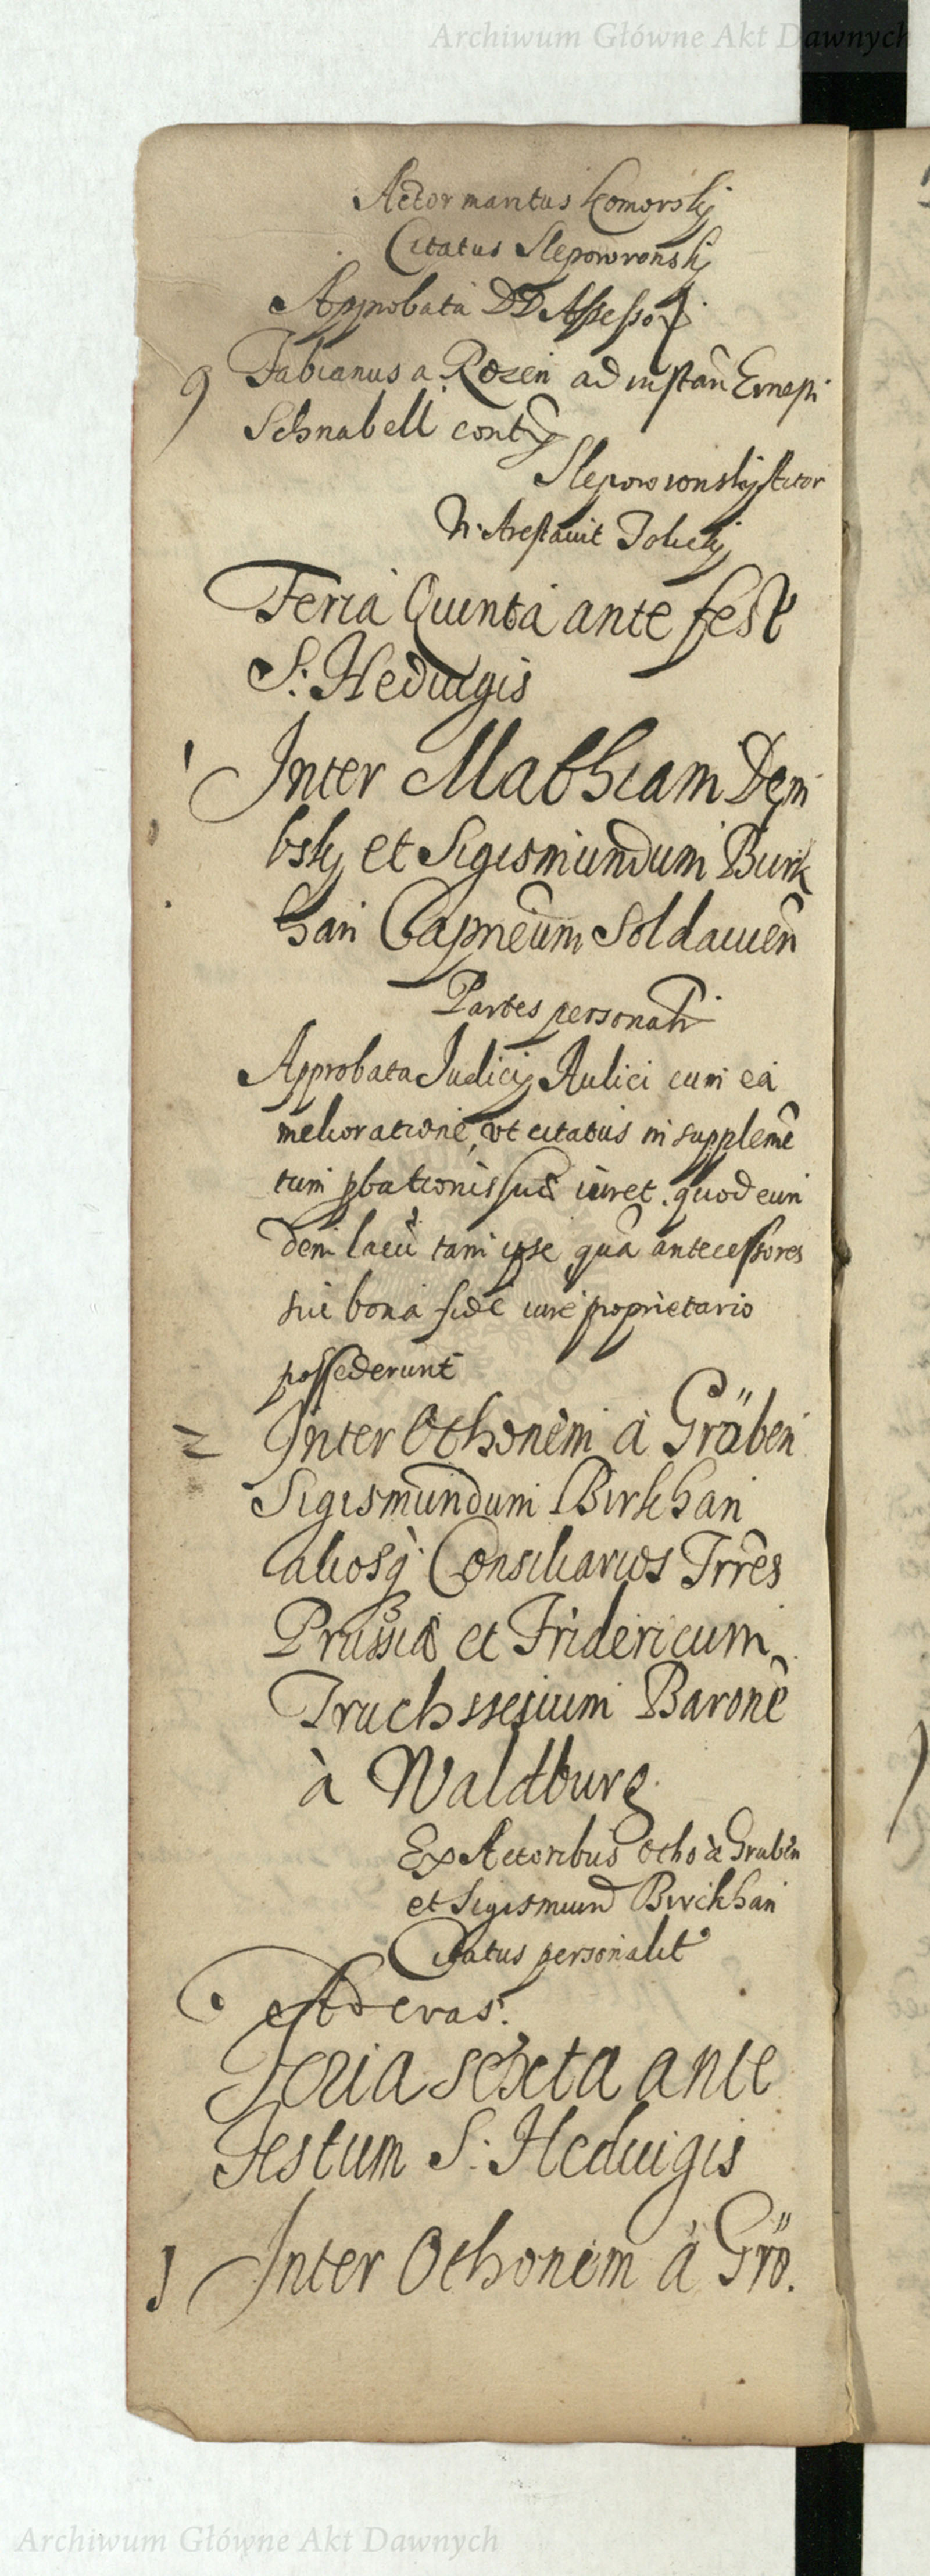 Archiwum Główne Akt Dawnych
Actor maritus Komorskÿ
Citatus Sleporvronskÿ
Approbata DD Assessor
9 Fabianus a Rozen ad instan̂ Ernesti
Schnabell cont
Slepowronskÿ Actor
Tolickÿ
Feria Quinta ante fest
S: Heduigis
1 Inter Mathiam Dem
bskÿ et Sigismundum Burk
han Capneum Soldauien̂
Partes personalr
Approbata Judicÿ Aulici cum ea
melioratione, vt citatus in supplemê
tum pbationis suæ iuret quod eun
dem lacû tam ipse quâ antecessores
sui bona fide iure proprietario
possederunt
2 Inter Othonem à Gräben
Sigismundum Birkhan
aliosq̀ Consiliarios Trr̂es
Prussiæ et Fridericum
Truchssesium Baronê
à Waldburg
Ex Actoribus Otho à Graben
et Sigismund Birckhan
Citatus personalit
Ad cras.
Feria sexta ante
Festum S: Heduigis
1 Inter Othonem à Grö.
Archiwum Główne Akt Dawnych